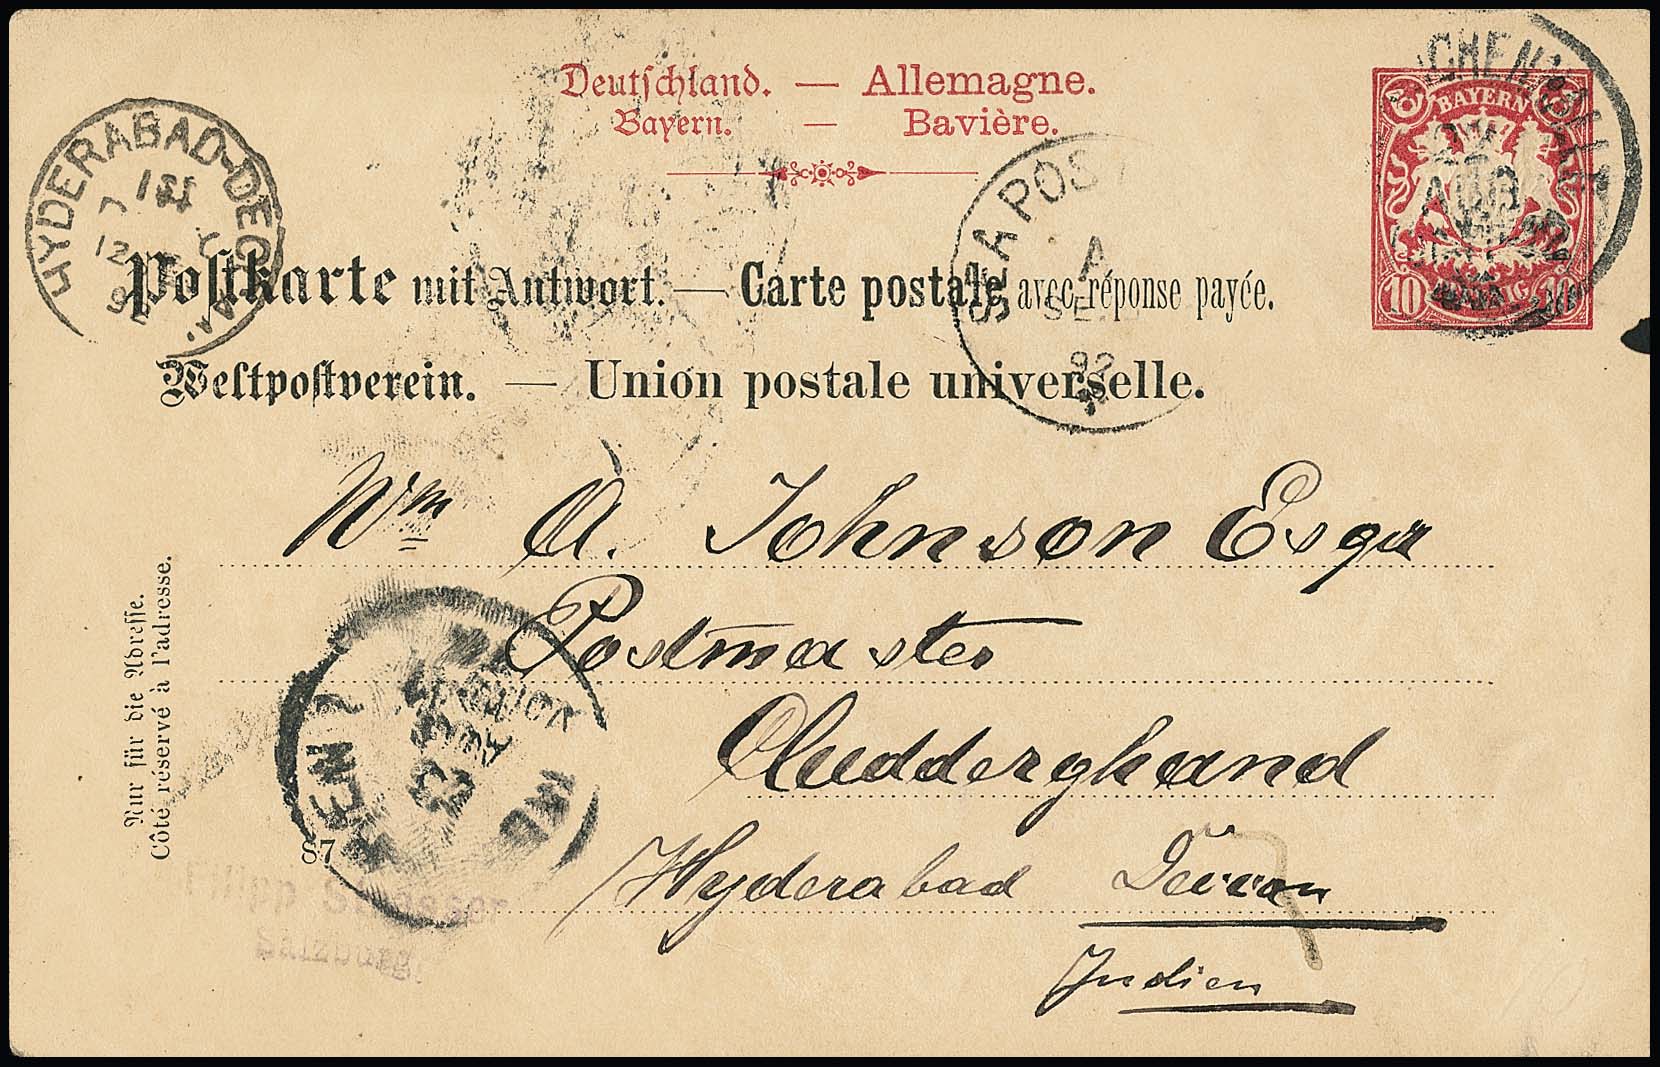 Deutschland. — Allemagne.
Bayern. — Bavière.
BAYERN
10 10
HYDERABAD-DECCAN
12
92
SEA POST
A
SE
92
Postkarte mit Antwort. — Carte postale avec réponse payée.
Weltpostverein. — Union postale universelle.
Wm A. Johnson Esqr
Postmaster
Chudderghand
Hyderabad Deccan
Indien
Nur für die Adresse.
Côté réservé à l'adresse.
87
AUG